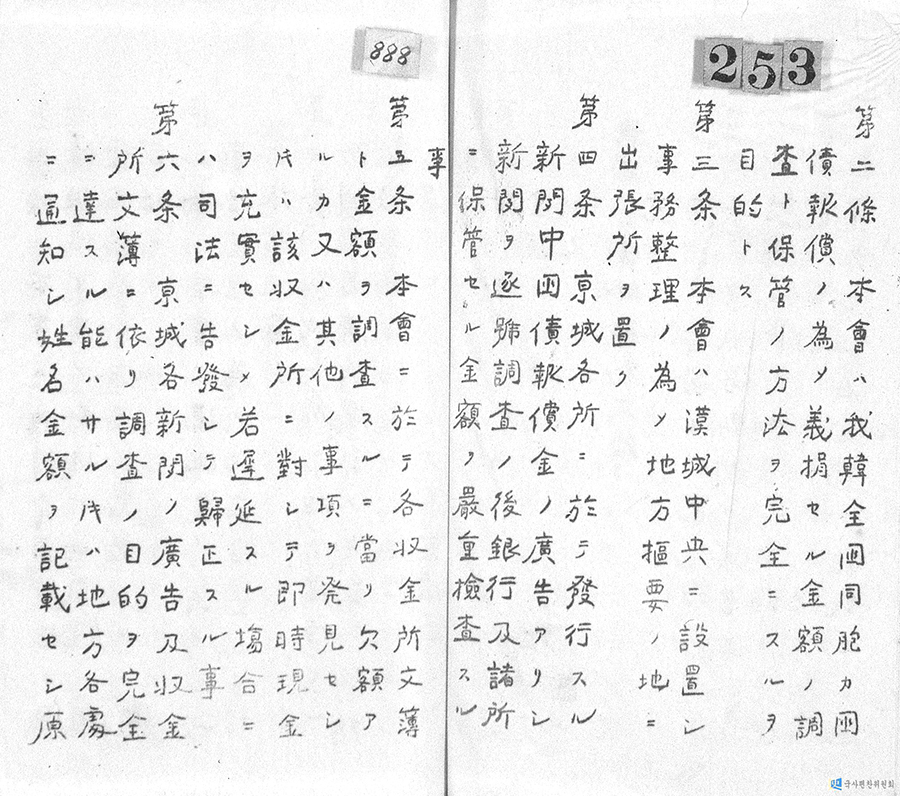 253
第二條 本會ハ我韓全囯同胞カ囯
債報償ノ為メ義捐セル金額ノ調
査ト保管ノ方法ヲ完全ニスルヲ
目的トス
第三条 本會ハ漢城中央ニ設置シ
事務整理ノ為メ地方樞要ノ地ニ
出張所ヲ置ク
第四条 京城各所ニ於テ發行スル
新聞中囯債報償金ノ廣告アリシ
新聞ヲ逐號調査ノ後銀行及諸所
ニ保管セル金額ヲ嚴重檢査スル
事
888
第五条 本會ニ於テ各収金所文簿
ト金額ヲ調査スルニ當リ欠額ア
ルカ又ハ其他ノ事項ヲ発見セシ
片ハ該収金所ニ對シテ即時現金
ヲ充實セシメ若遲延スル塲合ニ
ハ司法ニ告發シテ歸正スル事
第六条 京城各新聞ノ廣告及収金
所文簿ニ依リ調査ノ目的ヲ完全
ニ達スル能ハサル片ハ地方各處
ニ通知シ姓名金額ヲ記載セシ原
국사편찬위원회